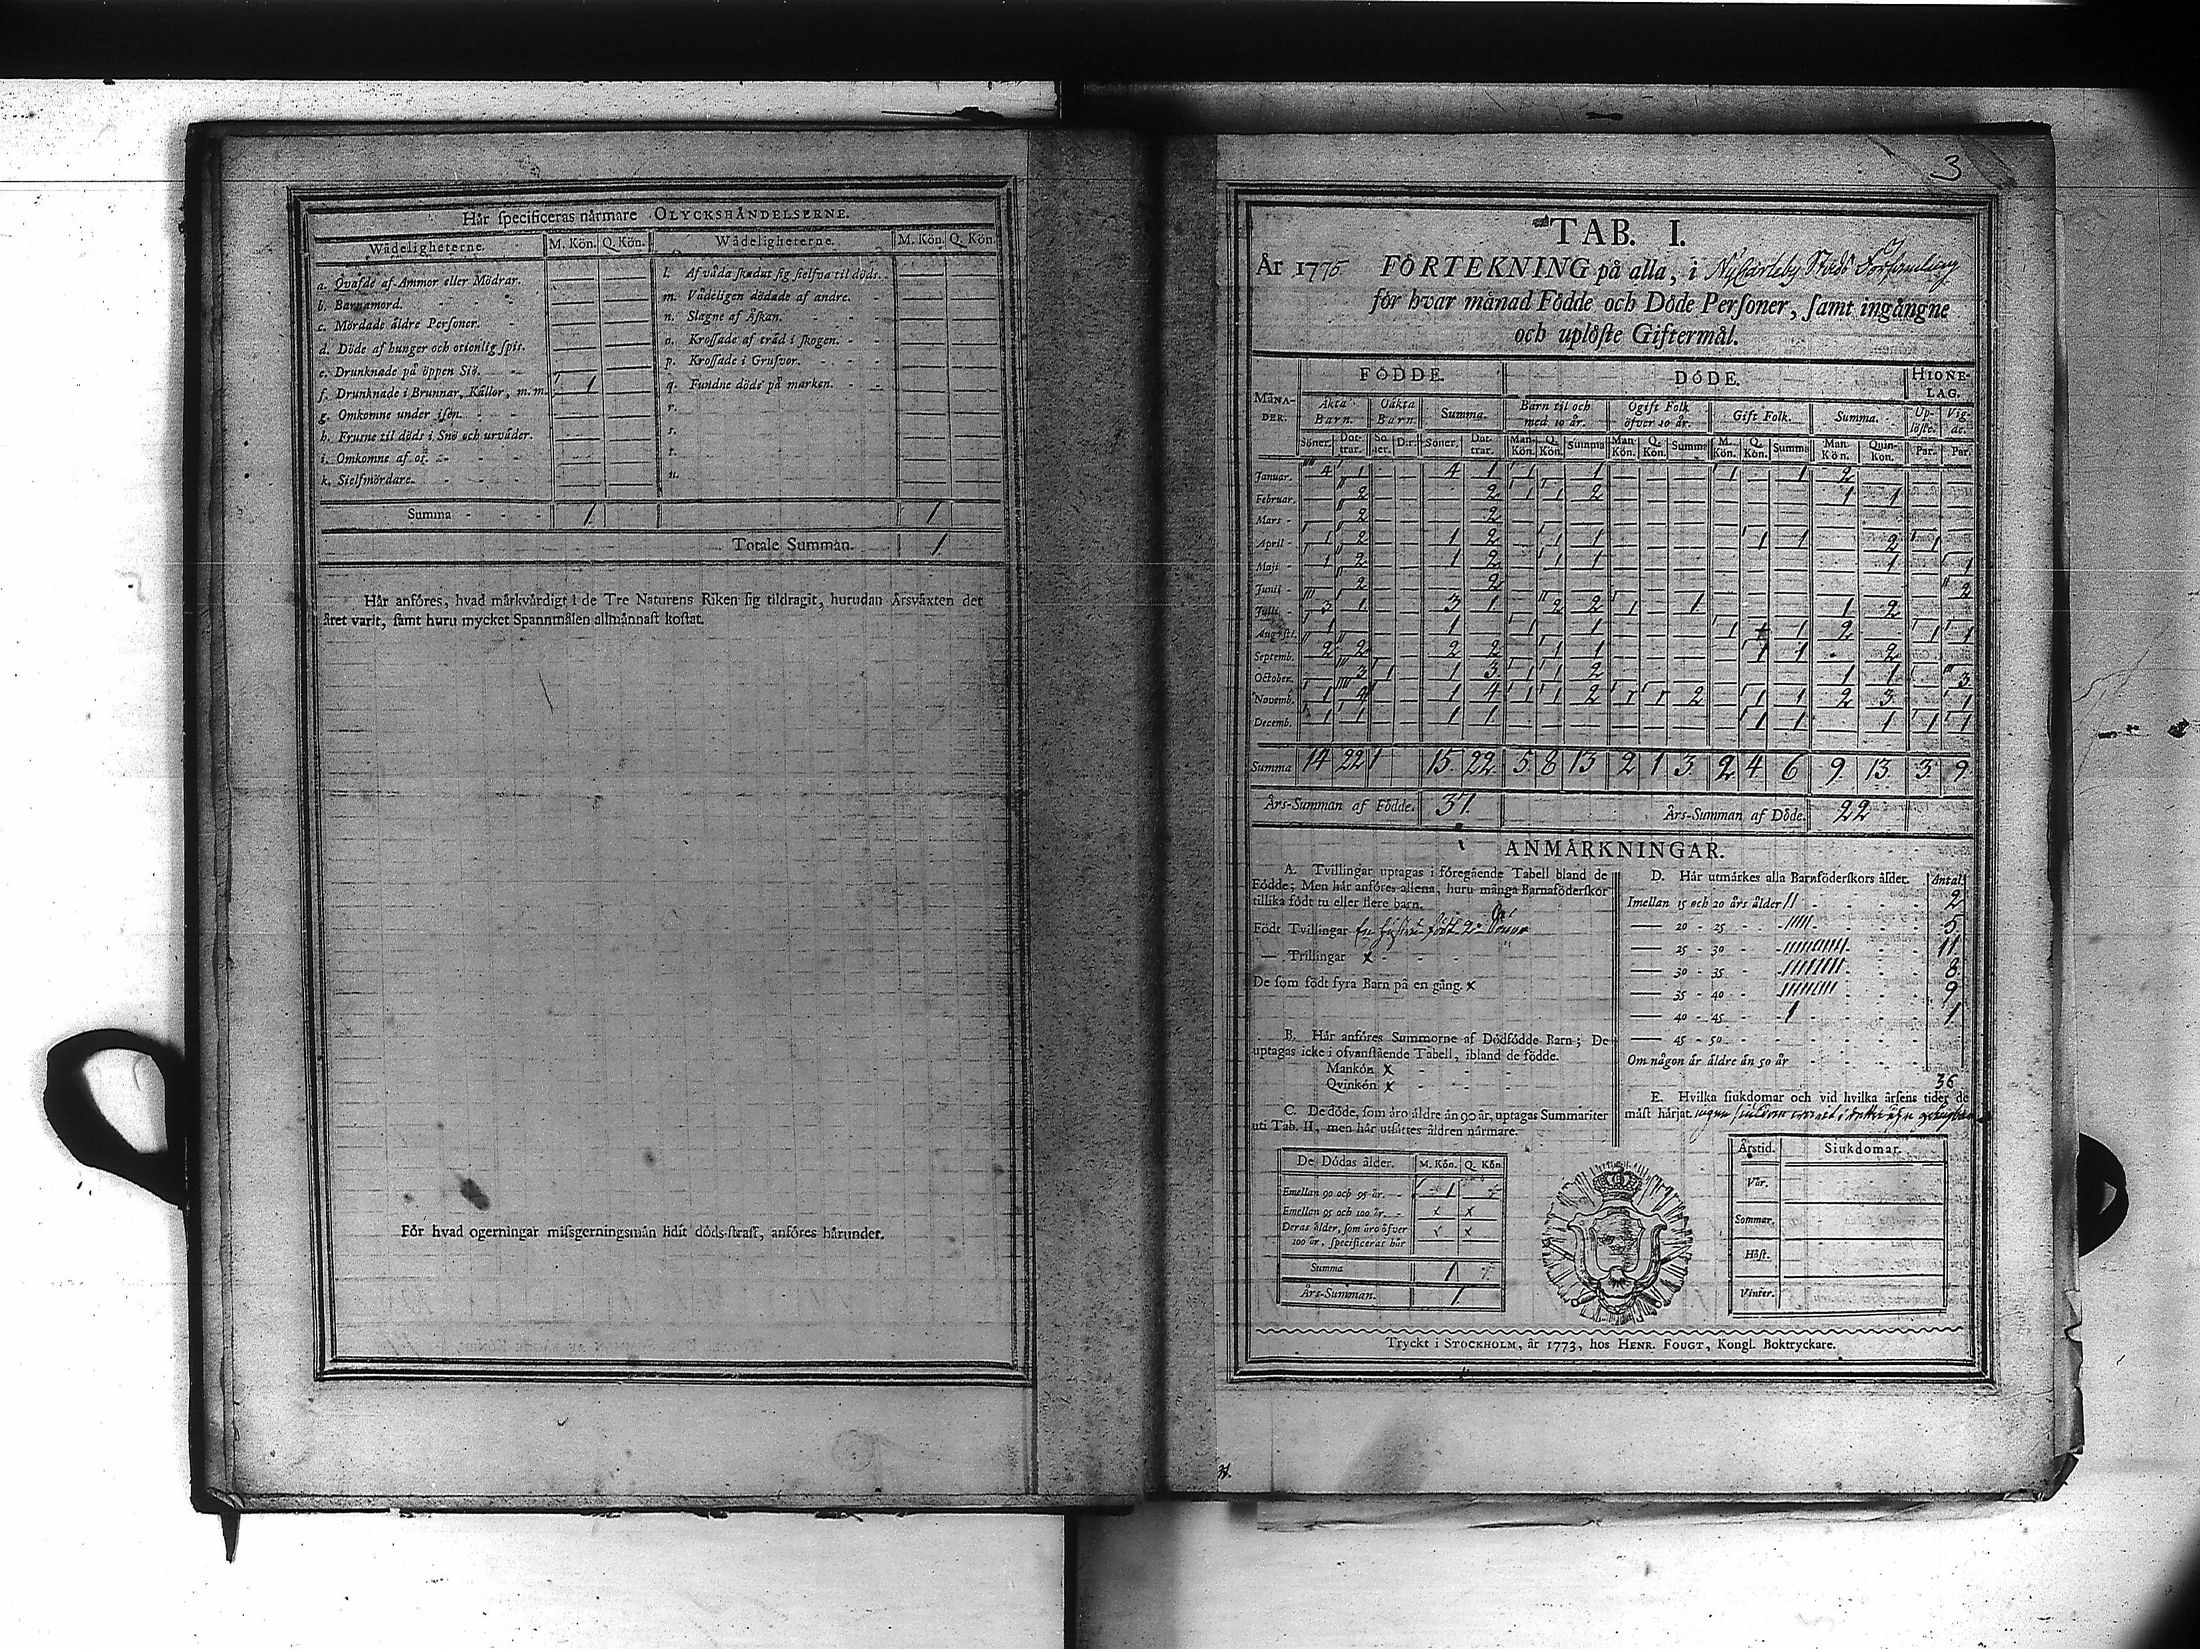 Hår ſpecificeras nårmare OLYCKSHÅNDELSERNE.
Wådeligheterne. M. Kön. Q. Kön. Wådeligheterne. M. Kön. Q. Kön.
a. Qvafde af Ammor eller Mödrar. — — l. Af våda ſkadat ſig ſielfva til döds. — —
b. Barnamord. — — m. Vådeligen dödade af andre. — —
c. Mördade åldre Perſoner. — — n. Slagne af Åſkan. — —
d. Döde af hunger och otienlig ſpis. — — o. Kroſſade af tråd i ſkogen. — —
e. Drunknade på öppen Siö. — — p. Kroſſade i Grufvor. — —
f. Drunknade i Brunnar, Kållor, m. m. 1 — q. Fundne döde på marken. — —
g. Omkomne under iſen. — — r. — —
h. Fruſne til döds i Snö och urvåder. — — s. — —
i. Omkomne af os. — — t. — —
k. Sielfmördare. — — u. — —
Summa - - - 1. 1
Totale Summan. 1
Hår anföres, hvad mårkvårdigt i de Tre Naturens Riken ſig tildragit, hurudan Årsvåxten det
året varit, ſamt huru mycket Spannmålen allmånnaſt koſtat.
För hvad ogerningar miſsgerningsmån lidit döds-ſtraff, anföres hårunder.
3
TAB. I.
År 1775 FÖRTEKNING på alla, i Nykarleby Stads Forsamling
för hvar månad Födde och Döde Perſoner, ſamt ingångne
och uplöſte Giftermål.
MÅNA-DER. FÖDDE. DÖDE. HIONE-LAG.
Åkta Barn. Oåkta Barn. Summa. Barn til och med 10 år. Ogift Folk öfver 10 år. Gift Folk. Summa. Up-löſte. Vig-de.
Söner. Dot-trar. Sö-ner. D:r. Söner. Dot-trar. Man-Kön. Q. Kön. Summa Man Kön. Q. Kön. Summa M. Kön. Q. Kön. Summa Man Kön. Quin-Kön. Par. Par.
Januar. 4 1 — — 4 1 1 — 1 — — — 1 — 1 2 — — —
Februar. — 2 — — — 2 1 1 2 — — — — — — 1 1 — —
Mars - — 2 — — — 2 — — — — — — — — — — — — —
April - 1 2 — — 1 2 — 1 1 — — — — 1 1 — 2 1 —
Maji - 1 2 — — 1 2 — 1 1 — — — — — — — 1 — 1
Junii - — 2 — — — 2 — — — — — — — — — — — — 2
Julii - 3 1 — — 3 1 — 2 2 1 — 1 — — — 1 2 — —
Auguſti. 1 — — — 1 — 1 — 1 — — — 1 — 1 2 — 1 1
Septemb. 2 2 — — 2 2 — 1 1 — — — — 1 1 — 2 — —
October. — 3 1 — 1 3 1 1 2 — — — — — — 1 1 — 3
Novemb. 1 4 — — 1 4 1 1 2 1 1 2 — 1 1 2 3 — 1
Decemb. 1 1 — — 1 1 — — — — — — — 1 1 — 1 1 1
Summa 14 22 1 15. 22 5 8 13 2 1 3 2 4 6 9 13. 3. 9.
Års-Summan af Födde. 37. Års-Summan af Döde. 22
ANMÅRKNINGAR.
A. Tvillingar uptagas i föregående Tabell bland de
Födde; Men hår anföres allena, huru många Barnaföderſkor
tillika födt tu eller flere barn.
Födt Tvillingar En hustru födt 2:
— Trillingar x - - -
De ſom födt fyra Barn på en gång. x
B. Hår anföres Summorne af Dödfödde Barn; De
uptagas icke i ofvanſtående Tabell, ibland de födde.
Mankön x - - -
Qvinkön x - - -
C. De döde, ſom åro åldre ån 90 år, uptagas Summariter
uti Tab. II, men hår utſåttes åldren nårmare.
De Dödas ålder. M. Kön. Q. Kön.
Emellan 90 och 95 år. - - 1
Emellan 95 och 100 år. - x x
Deras ålder, ſom åro öfver
100 år, ſpecificeras hår x x
Summa 1
Års-Summan. 1.
D. Hår utmårkes alla Barnföderſkors ålder. Antal
Imellan 15 och 20 års ålder 2
— 20 - 25 - 5
— 25 - 30 - 11
— 30 - 35 - 8
— 35 - 40 - 9
— 40 - 45 - 1
— 45 - 50 -
Om någon år åldre ån 50 år
36
E. Hvilka ſiukdomar och vid hvilka årſens tider de
måſt hårjat. ingen siukdom
Årstid. Siukdomar.
Vår.
Sommar.
Höſt.
Vinter.
Tryckt i STOCKHOLM, år 1773, hos HENR. FOUGT, Kongl. Boktryckare.